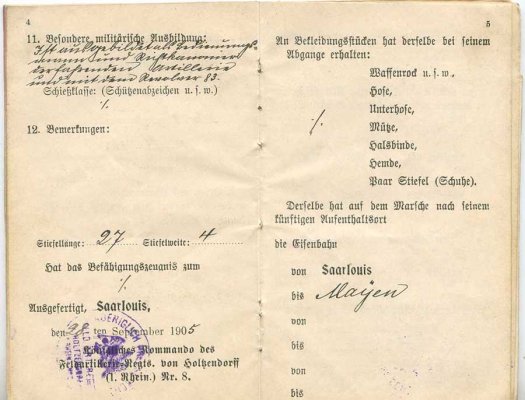 4
11. Besondere militärische Ausbildung:
Ist ausgebildet als Bedienungs-
kanonier
Artillerie
und mit dem Revolver 83.
Schießklasse: (Schützenabzeichen u. s. w.)
·/.
12. Bemerkungen:
Stiefellänge: 27 Stiefelweite: 4
Hat das Befähigungszeugnis zum
·/.
Ausgefertigt, Saarlouis,
den 28 ten September 1905
Königliches Kommando des
Feldartillerie-Regts. von Holtzendorff
(1. Rhein.) Nr. 8.
5
An Bekleidungsstücken hat derselbe bei seinem
Abgange erhalten:
Waffenrock u. s. w.,
Hose,
Unterhose,
·/. Mütze,
Halsbinde,
Hemde,
Paar Stiefel (Schuhe).
Derselbe hat auf dem Marsche nach seinem
künftigen Aufenthaltsort
die Eisenbahn
von Saarlouis
bis Mayen
von
bis
von
bis